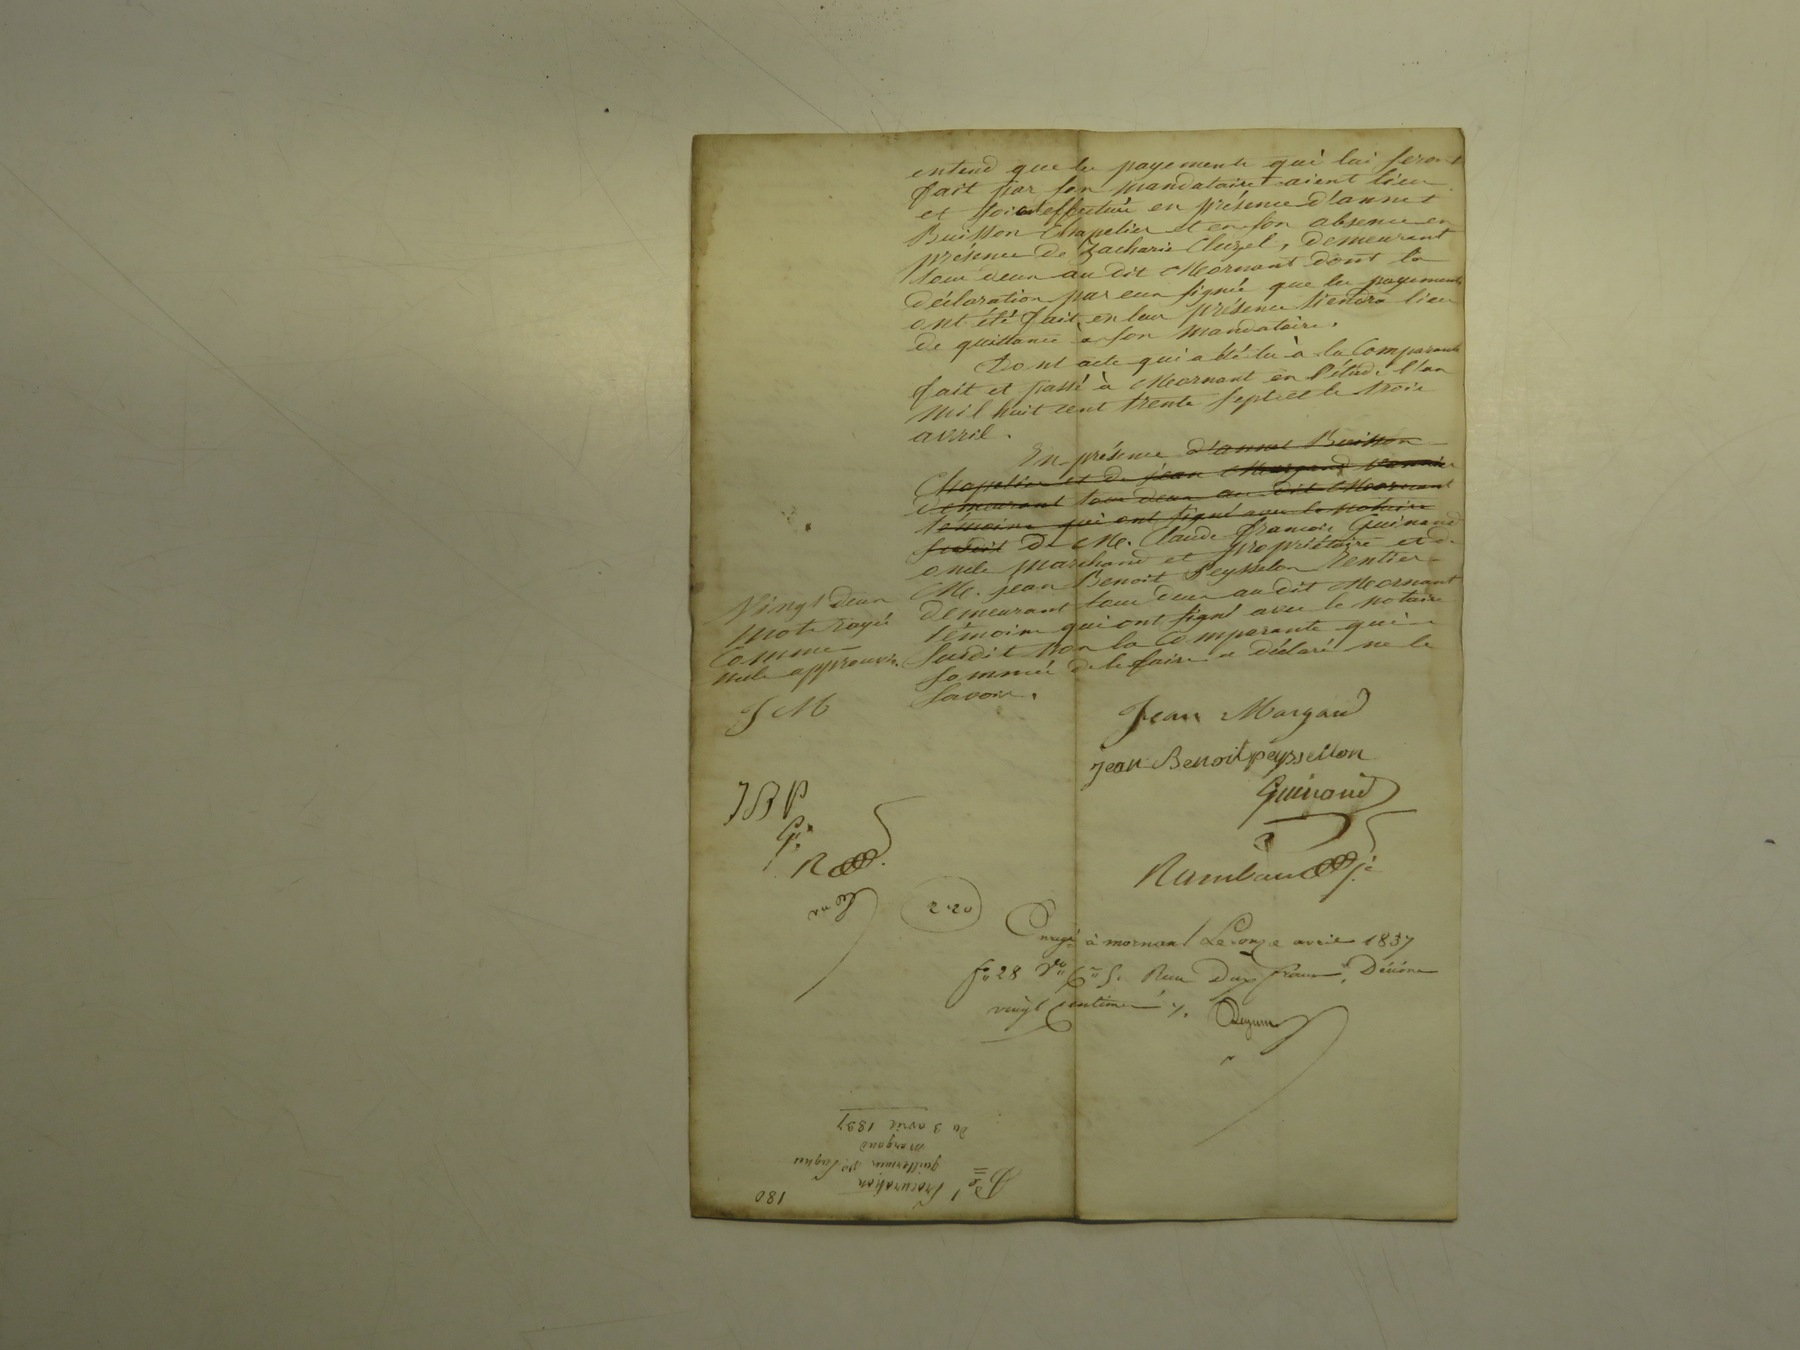 entend que les payements qui lui seront
fait par son mandataire aient lieu
et soient effectués en présence d'annet
Buisson Chapelier et en son absence en
présence de Zacharie Cluzel, demeurant
tous deux au dit Mornant dont la
déclaration par eux signée que les payements
ont été fait en leur présence tiendra lieu
de quittance à son mandataire.
Dont acte qui a été lu à la Comparante
fait et passé à Mornant en l'étude l'an
mil huit cent trente sept et le trois
avril.
En présence d'annet Buisson
Chapelier et de jean Margand
demeurant tous deux au dit Mornant
témoins qui ont signé avec le notaire
susdit de M. Claude françois Guinand
oncle marchand et propriétaire et de
M. jean Benoit Peysselon Rentier
demeurant tous deux au dit Mornant
témoins qui ont signé avec le notaire
susdit non la Comparante qui
sommée de le faire a déclaré ne le
savoir.
Vingt deux
mots rayés
Comme
nuls approuvés.
J M
Jean Margand
jean Benoit peyssellon
Guinand
J B P
G.
R
Rambaud
2.20
Enregé à mornant Le onze avril 1837
fo 28 vo Co 5. Reçu Deux francs, Décime
vingt centimes
180
Procuration
guillermin Ve
margand
du 3 avril 1837